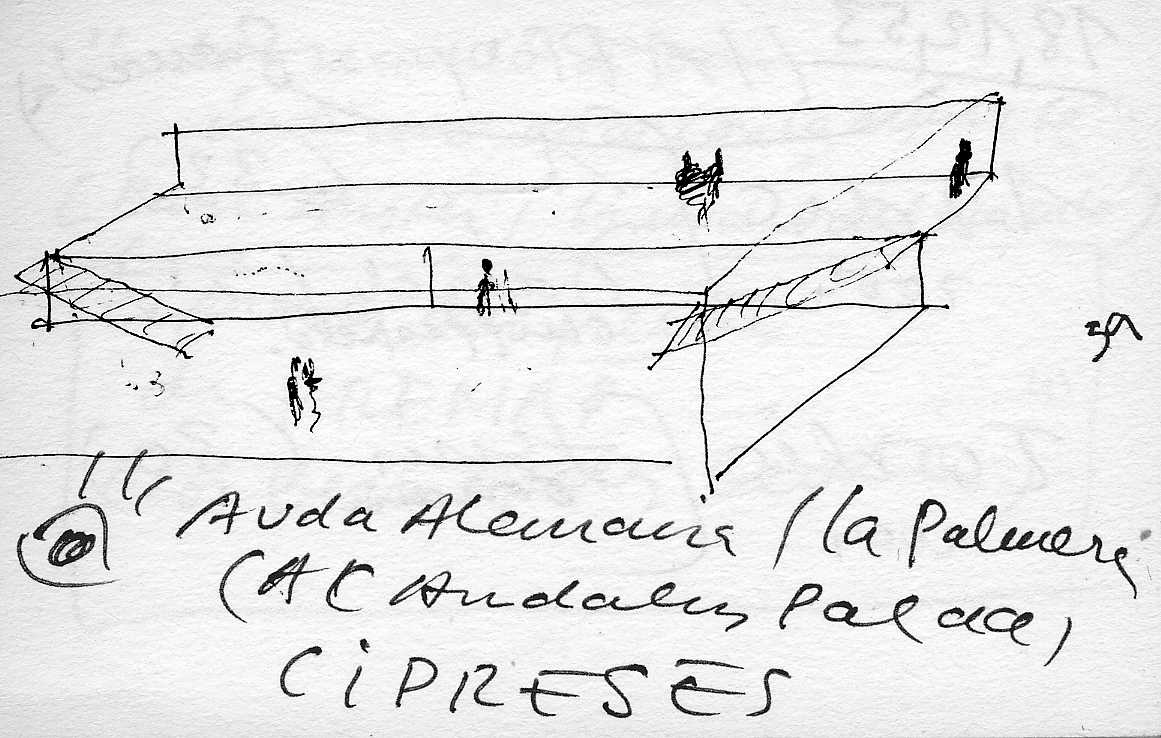 Avda Alemania / la Palmera
(AC Andaluz Palace)
CIPRESES